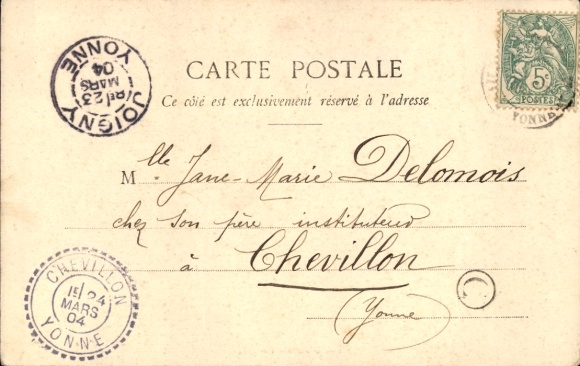 CARTE POSTALE
Ce côté est exclusivement réservé à l'adresse
Mlle Jane-Marie Delomois
chez son père instituteur
à Chevillon
(Yonne)
JOIGNY
23
MARS
04
YONNE
CHEVILLON
1E/ 24
MARS
04
YONNE
5c
POSTES
YONNE
C